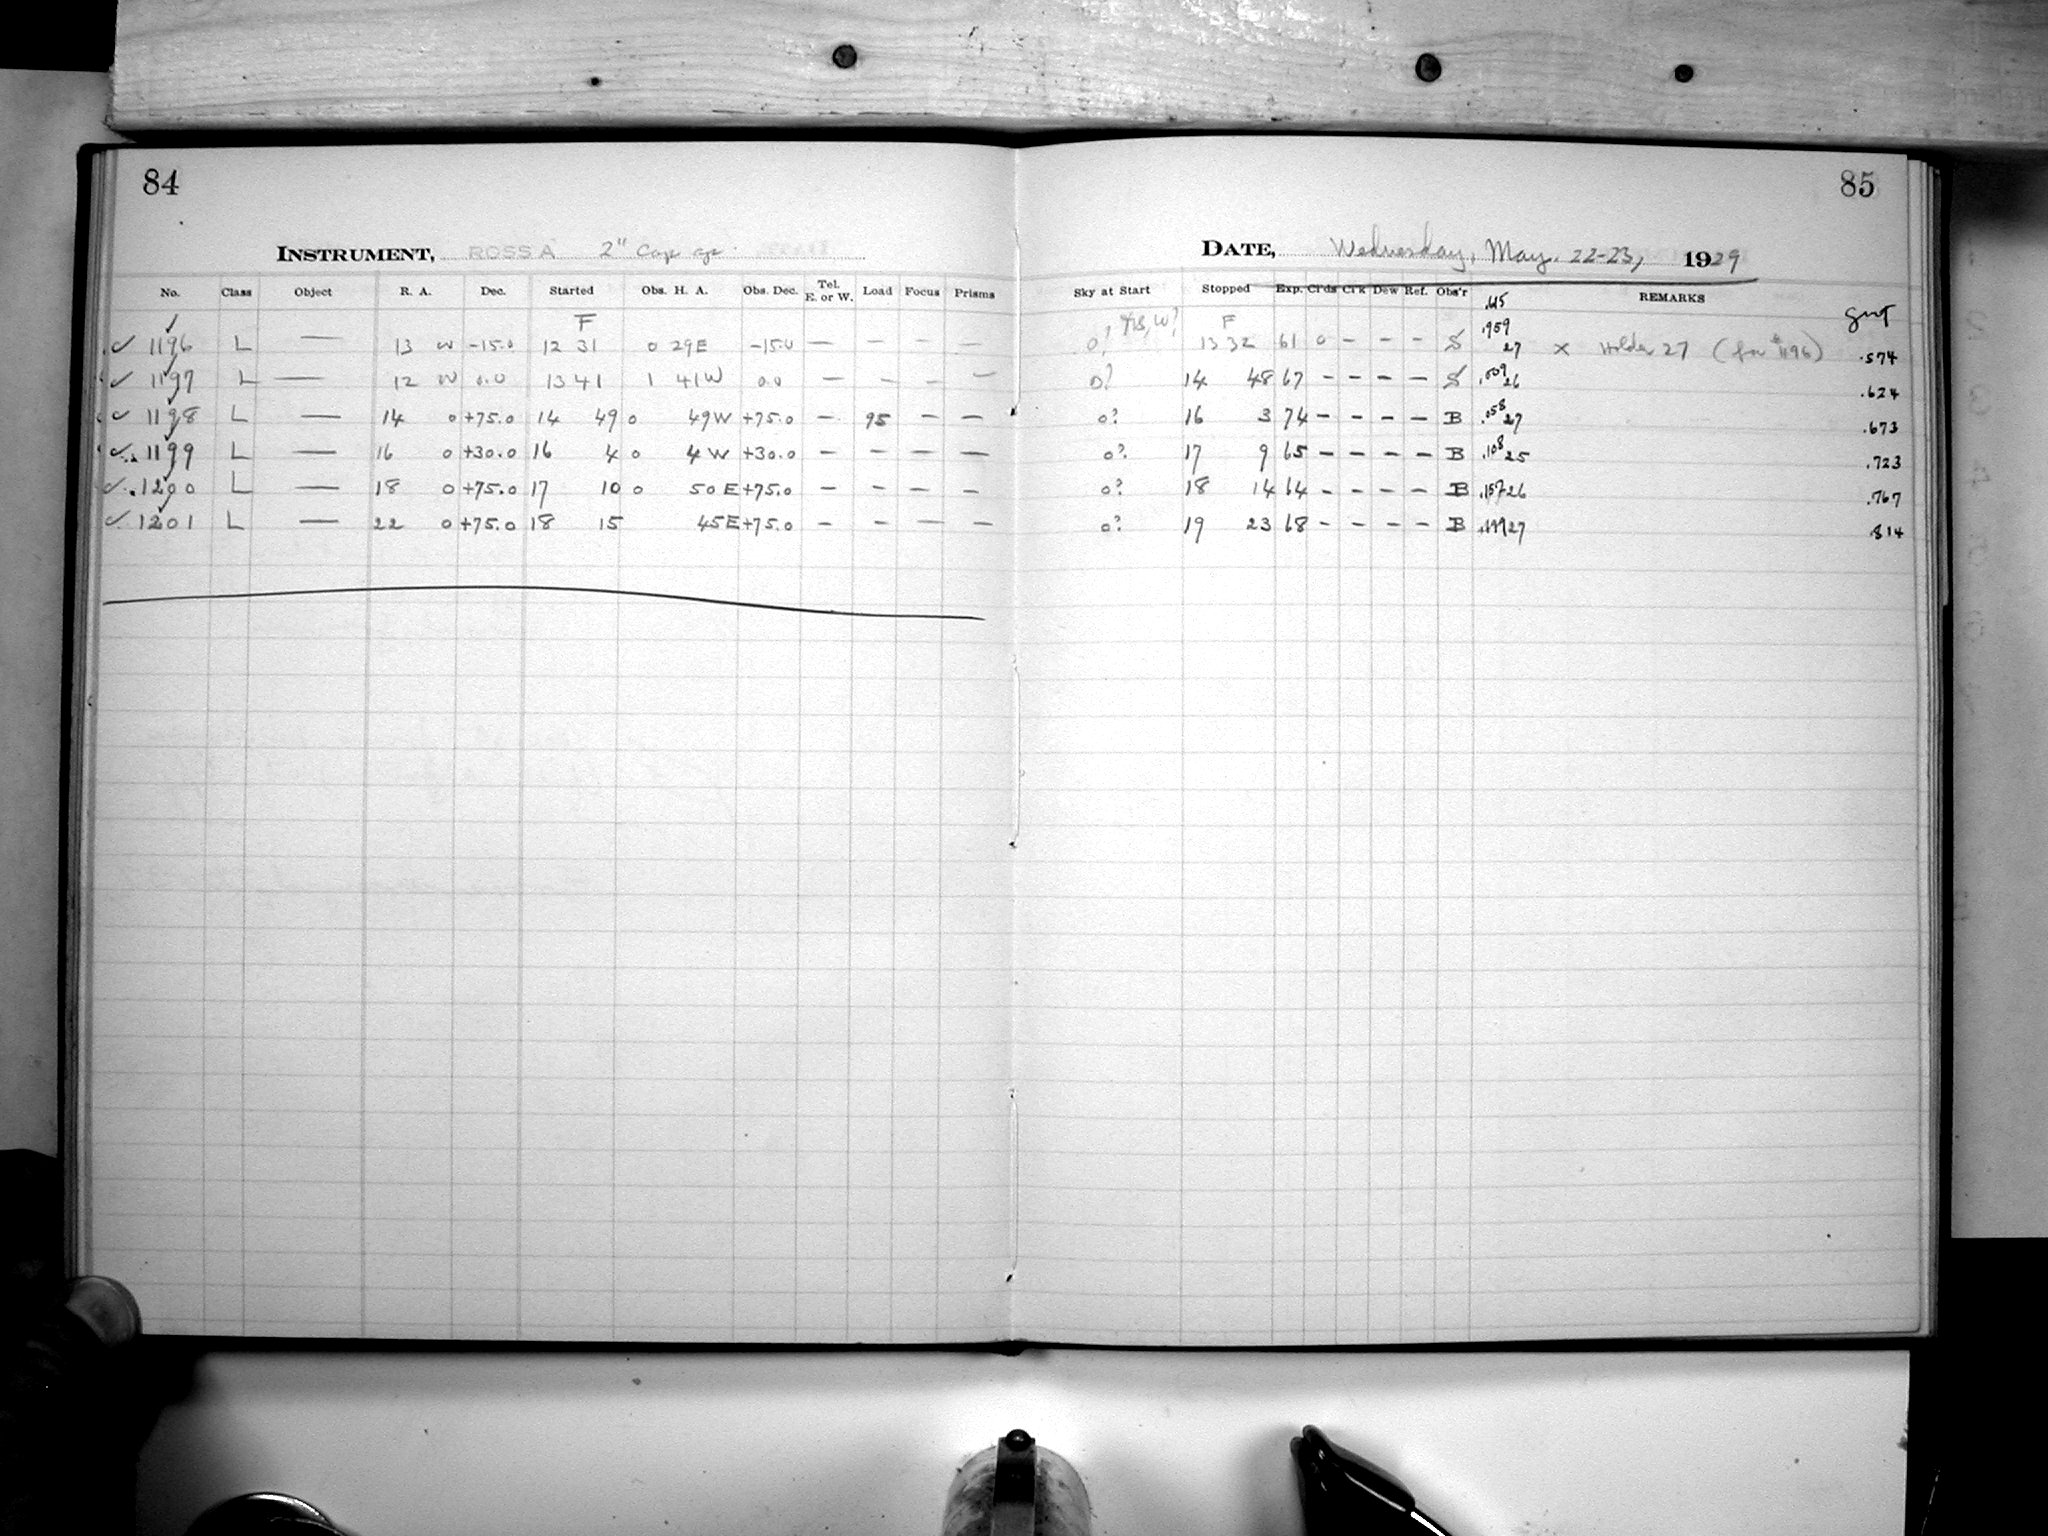 84
INSTRUMENT, ROSS A 2" Cap ap.
No. Class Object R. A. Dec. Started Obs. H. A. Obs. Dec. Tel. E. or W. Load Focus Prisms
F
✓ 1196 L — 13 W -15.0 12 31 0 29E -15.0 — — — —
✓ 1197 L — 12 W 0.0 13 41 1 41W 0.0 — — — —
✓ 1198 L — 14 0 +75.0 14 49 0 49W +75.0 — 95 — —
✓ 1199 L — 16 0 +30.0 16 4 0 4W +30.0 — — — —
✓ 1200 L — 18 0 +75.0 17 10 0 50E +75.0 — — — —
✓ 1201 L — 22 0 +75.0 18 15 45E +75.0 — — — —
85
DATE, Wednesday, May. 22-23, 1929
Sky at Start Stopped Exp. Cl'ds Cl'k Dew Ref. Obs'r REMARKS
F GMT
0? 13 32 61 0 - - - S .959 27 x Holder 27 (for #1196) .574
0? 14 48 67 - - - - S .009 26 .624
0? 16 3 74 - - - - B .058 27 .673
0? 17 9 65 - - - - B .108 25 .723
0? 18 14 64 - - - - B .157 26 .767
0? 19 23 68 - - - - B .199 27 .814